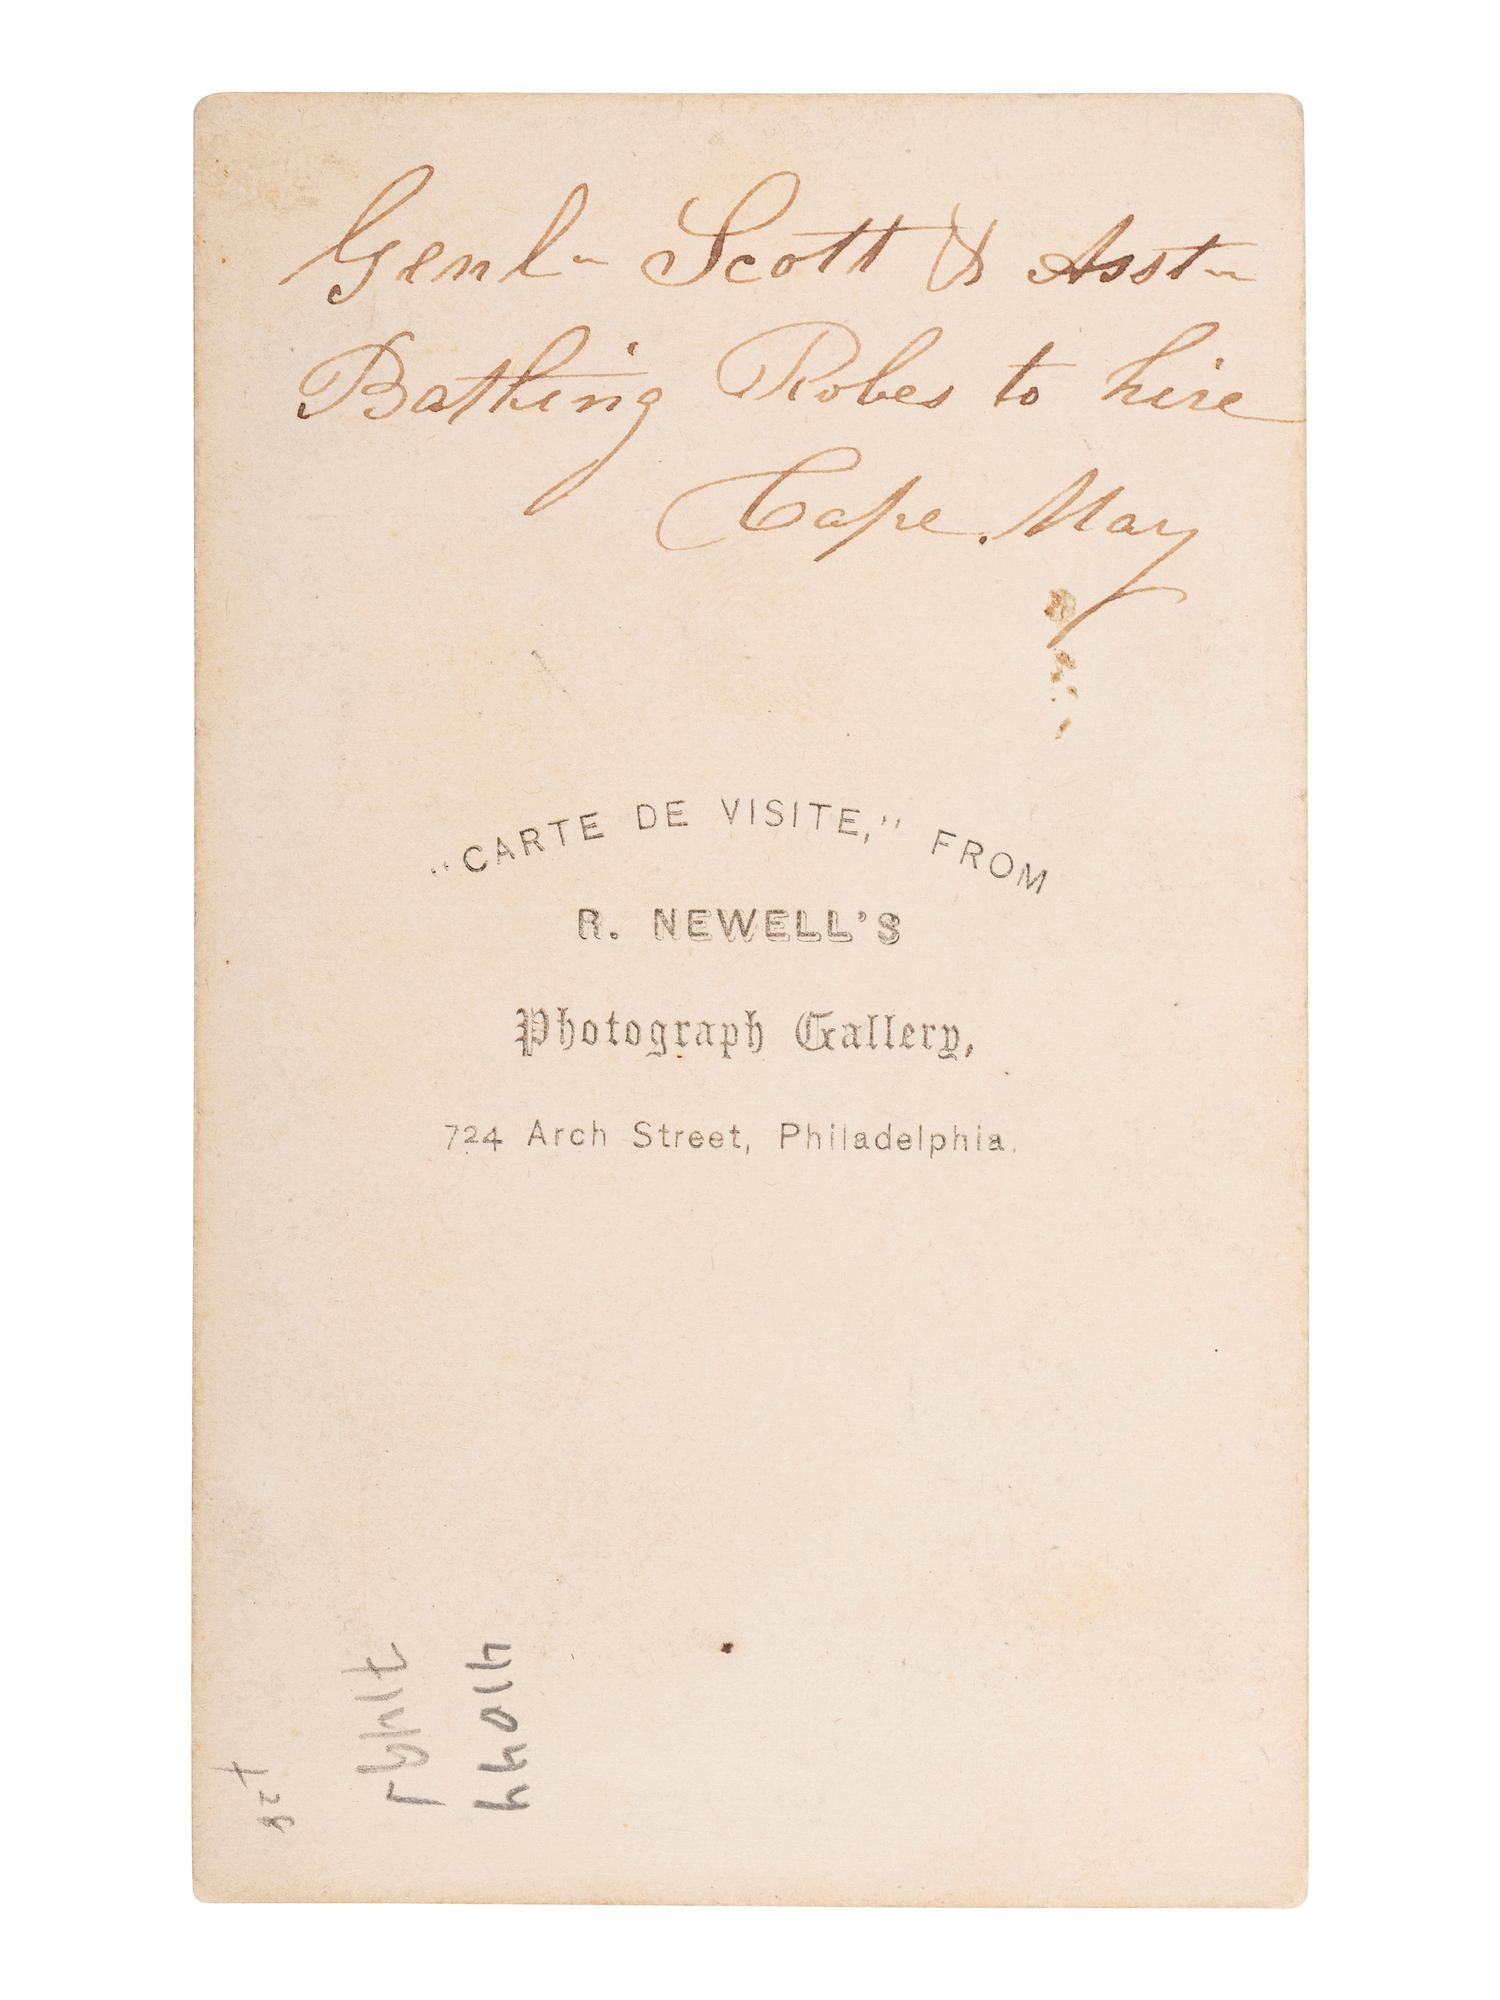 Genl- Scott & Asst-
Bathing Robes to hire
Cape. May
"CARTE DE VISITE," FROM
R. NEWELL'S
Photograph Gallery,
724 Arch Street, Philadelphia.